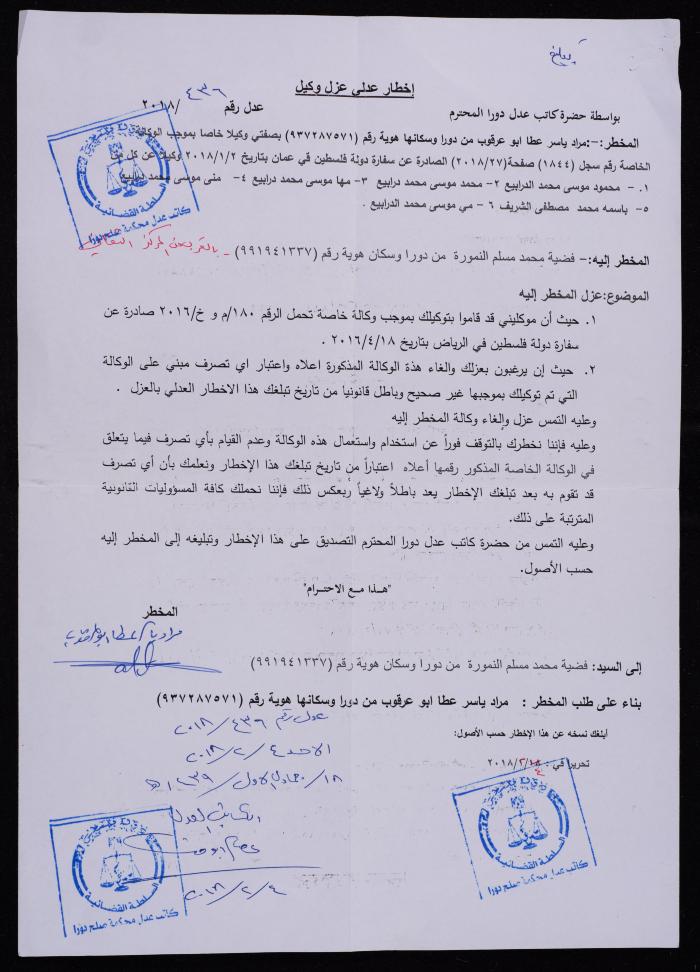 تبليغ
إخطار عدلي عزل وكيل
بواسطة حضرة كاتب عدل دورا المحترم عدل رقم ٤٣٦ /٢٠١٨
المخطر :-: مراد ياسر عطا ابو عرقوب من دورا وسكانها هوية رقم (٩٣٧٢٨٧٥٧١) بصفتي وكيلا خاصا بموجب الوكالة
الخاصة رقم سجل (١٨٤٤) صفحة(٢٠١٨/٢٧) الصادرة عن سفارة دولة فلسطين في عمان بتاريخ ٢٠١٨/١/٢ وكيلا عن كل من
١. - محمود موسى محمد الدرابيع ٢- محمد موسى محمد درابيع ٣- مها موسى محمد درابيع ٤- منى موسى محمد درابيع
٥- باسمه محمد مصطفى الشريف ٦ - مي موسى محمد الدرابيع .
المخطر إليه:- فضية محمد مسلم النمورة من دورا وسكان هوية رقم (٩٩١٩٤١٣٣٧) - بالقرب من المركز الثقافي
الموضوع:عزل المخطر إليه
١. حيث أن موكليني قد قاموا بتوكيلك بموجب وكالة خاصة تحمل الرقم ١٨٠/م و خ/٢٠١٦ صادرة عن
سفارة دولة فلسطين في الرياض بتاريخ ٢٠١٦/٤/١٨ .
٢. حيث إن يرغبون بعزلك والغاء هذة الوكالة المذكورة اعلاه واعتبار اي تصرف مبني على الوكالة
التي تم توكيلك بموجبها غير صحيح وباطل قانونيا من تاريخ تبلغك هذا الاخطار العدلي بالعزل .
وعليه التمس عزل وإلغاء وكالة المخطر إليه
وعليه فإننا نخطرك بالتوقف فوراً عن استخدام واستعمال هذه الوكالة وعدم القيام بأي تصرف فيما يتعلق
في الوكالة الخاصة المذكور رقمها أعلاه اعتباراً من تاريخ تبلغك هذا الإخطار ونعلمك بأن أي تصرف
قد تقوم به بعد تبلغك الإخطار يعد باطلاً ولاغياً وبعكس ذلك فإننا نحملك كافة المسؤوليات القانونية
المترتبة على ذلك.
وعليه التمس من حضرة كاتب عدل دورا المحترم التصديق على هذا الإخطار وتبليغه إلى المخطر إليه
حسب الأصول.
"هـذا مـع الاحتـرام"
المخطر
مراد ياسر عطا ابو عرقوب
إلى السيد: فضية محمد مسلم النمورة من دورا وسكان هوية رقم (٩٩١٩٤١٣٣٧)
بناء على طلب المخطر : مراد ياسر عطا ابو عرقوب من دورا وسكانها هوية رقم (٩٣٧٢٨٧٥٧١)
أبلغك نسخه عن هذا الإخطار حسب الأصول:
تحريرا في : ٤/٢/٢٠١٨
عدل رقم ٤٣٦/٢٠١٨
الاحد ٤/٢/٢٠١٨
١٨/جمادى الاول/١٤٣٩هـ
الكاتب العدل
٤/٢/٢٠١٨
السلطة القضائية
كاتب عدل محكمة صلح دورا
السلطة القضائية
كاتب عدل محكمة صلح دورا
السلطة القضائية
كاتب عدل محكمة صلح دورا